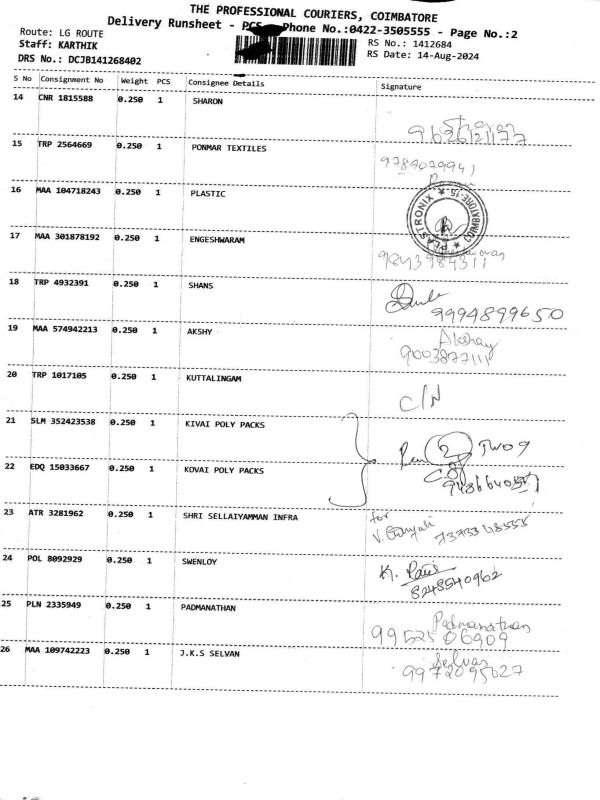 THE PROFESSIONAL COURIERS, COIMBATORE
Delivery Runsheet - PCS - Phone No.:0422-3505555 - Page No.:2
Route: LG ROUTE
RS No.: 1412684
Staff: KARTHIK
RS Date: 14-Aug-2024
DRS No.: DCJB141268402
S No Consignment No Weight PCS Consignee Details Signature
14 CNR 1815588 0.250 1 SHARON
Sharon
9626121177
15 TRP 2564669 0.250 1 PONMAR TEXTILES
16 MAA 104718243 0.250 1 PLASTIC
PLASTRONIX ★ COIMBATORE-15 ★
17 MAA 301878192 0.250 1 ENGESHWARAM
9843984311
18 TRP 4932391 0.250 1 SHANS
9994899650
19 MAA 574942213 0.250 1 AKSHY
Akshay
9003877111
20 TRP 1017105 0.250 1 KUTTALINGAM
C/N
21 SLM 352423538 0.250 1 KIVAI POLY PACKS
22 EDQ 15033667 0.250 1 KOVAI POLY PACKS
23 ATR 3281962 0.250 1 SHRI SELLAIYAMMAN INFRA
for
7373368555
24 POL 8092929 0.250 1 SWENLOY
K. Paul
8248540962
25 PLN 2335949 0.250 1 PADMANATHAN
Padmanathan
9952506909
26 MAA 109742223 0.250 1 J.K.S SELVAN
Selvan
9972095027